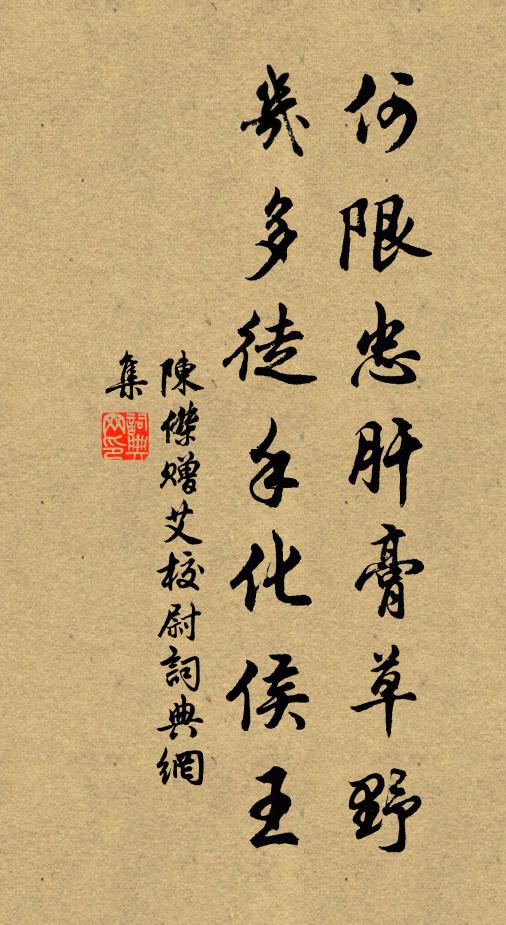 何限忠肝膏草野
幾多徒手化侯王
陳傑贈艾校尉詞典網
集
詞典網印